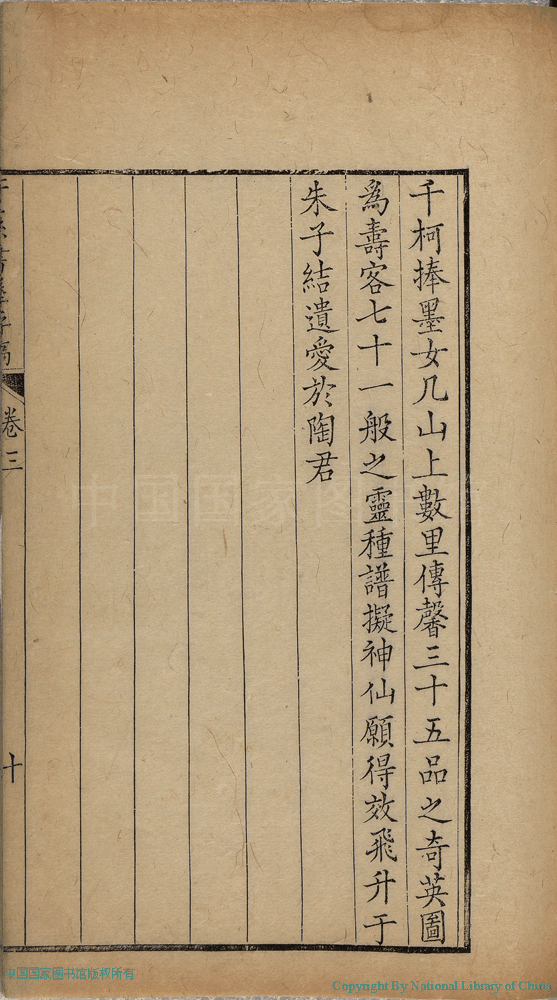 千柯捧墨女几山上數里傳馨三十五品之奇英圖
為壽客七十一般之靈種譜擬神仙願得效飛升于
朱子結遺愛於陶君
卷三
十
中国国家图书馆版权所有
Copyright By National Library of China